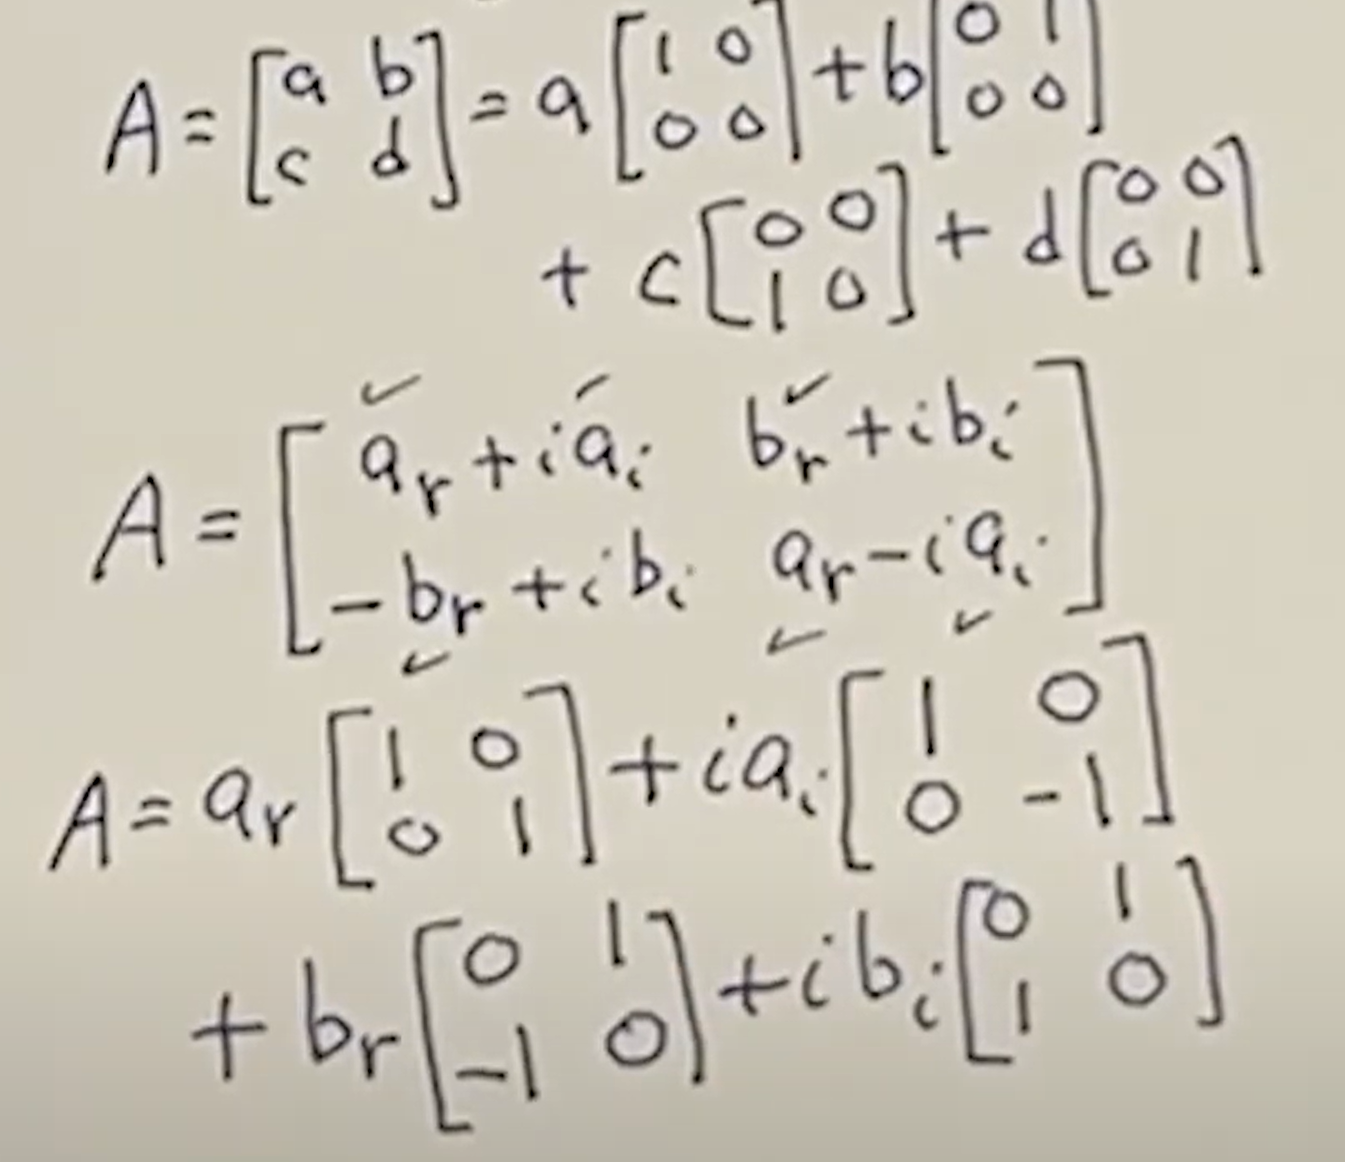 A = [a b; c d] = a [1 0; 0 0] + b [0 1; 0 0]
+ c [0 0; 1 0] + d [0 0; 0 1]
A = [aᵣ + iaᵢ bᵣ + ibᵢ; -bᵣ + ibᵢ aᵣ - iaᵢ]
A = aᵣ [1 0; 0 1] + iaᵢ [1 0; 0 -1]
+ bᵣ [0 1; -1 0] + ibᵢ [0 1; 1 0]